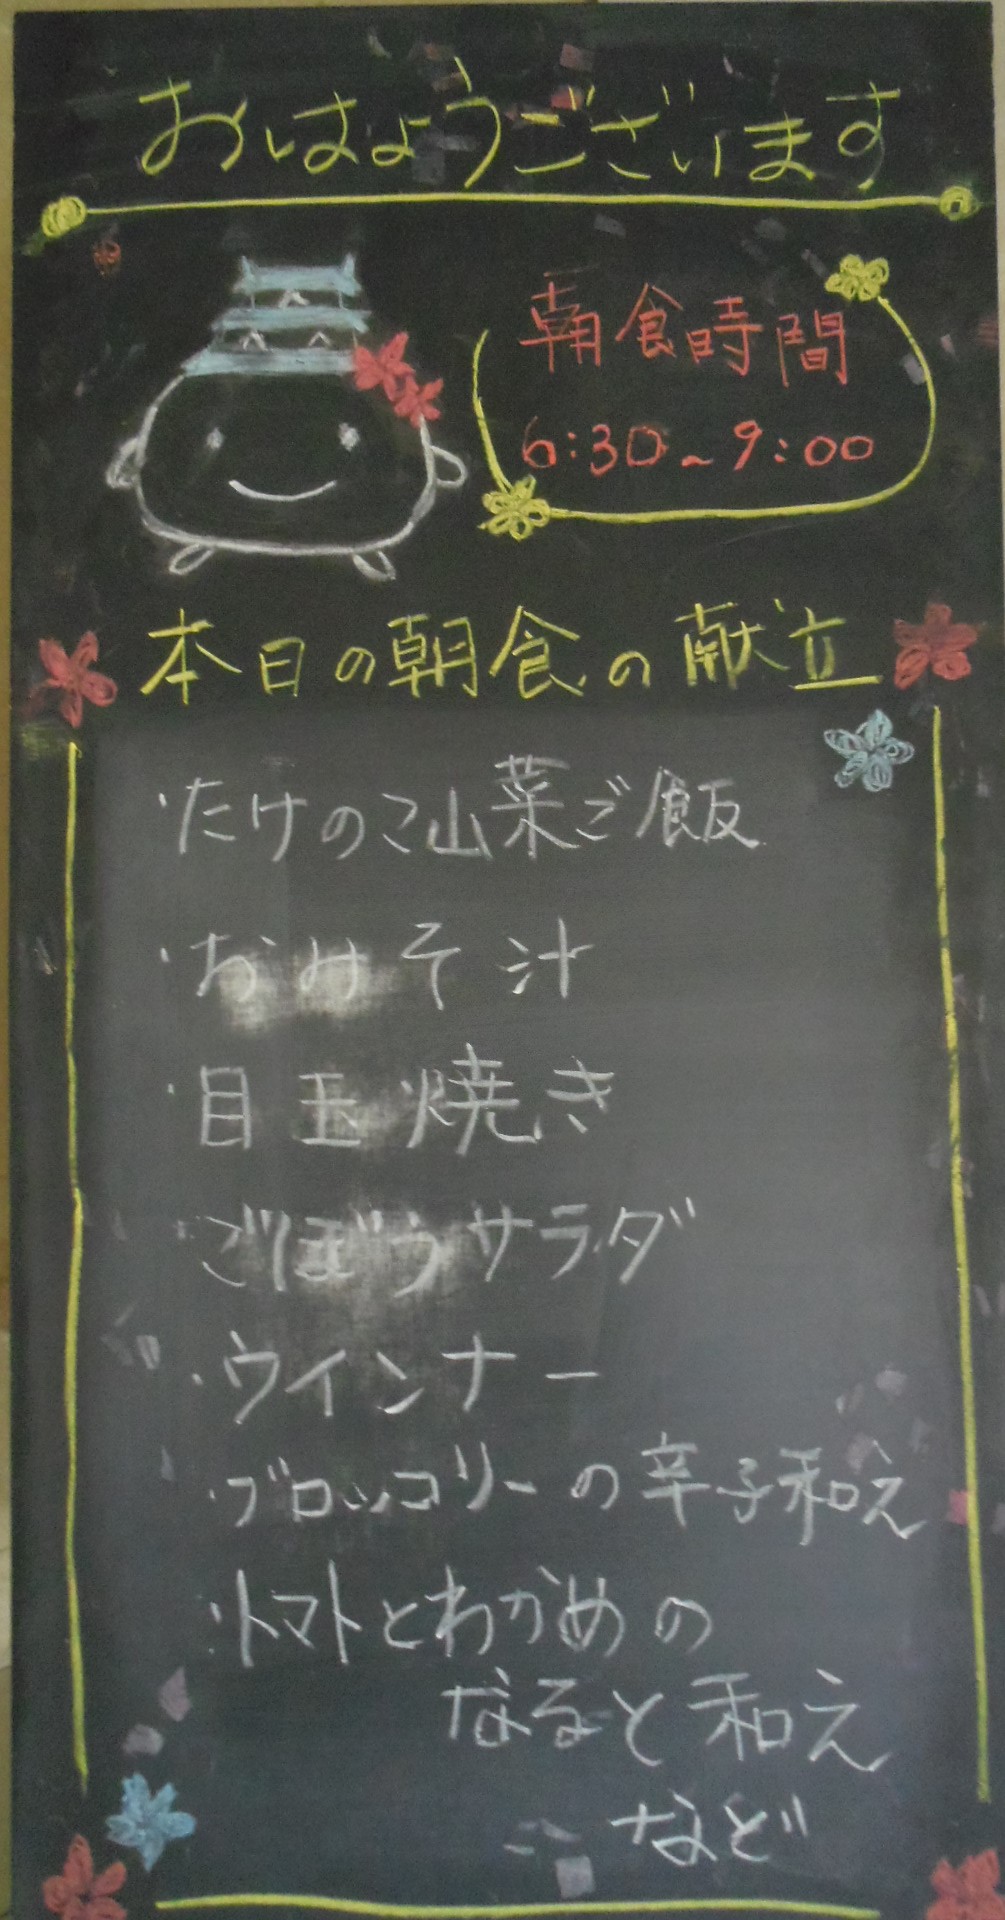 おはようございます
朝食時間
6:30~9:00
本日の朝食の献立
・たけのこ山菜ご飯
・おみそ汁
・目玉焼き
・ごぼうサラダ
・ウインナー
・ブロッコリーの辛子和え
・トマトとわかめの
なると和え
など